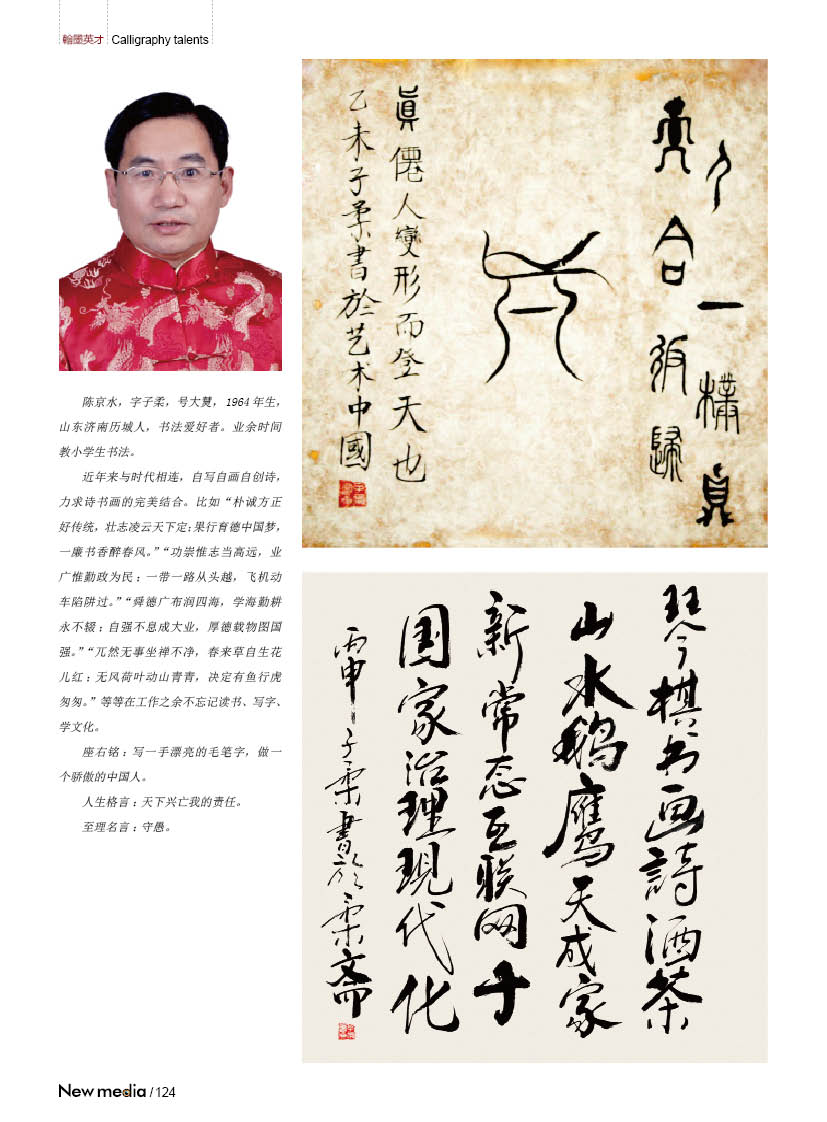 翰墨英才 Calligraphy talents
陈京水，字子柔，号大贤，1964 年生，
山东济南历城人，书法爱好者。业余时间
教小学生书法。
近年来与时代相连，自写自画自创诗，
力求诗书画的完美结合。比如“朴诚方正
好传统，壮志凌云天下定；果行育德中国梦，
一廉书香醉春风。”“功崇惟志当高远，业
广惟勤政为民；一带一路从头越，飞机动
车陷阱过。”“舜德广布润四海，学海勤耕
永不辍；自强不息成大业，厚德载物图国
强。”“兀然无事坐禅不净，春来草自生花
儿红；无风荷叶动山青青，决定有鱼行虎
匆匆。”等等在工作之余不忘记读书、写字、
学文化。
座右铭：写一手漂亮的毛笔字，做一
个骄傲的中国人。
人生格言：天下兴亡我的责任。
至理名言：守愚。
人一樸真
合返歸
真僊人變形而登天也
乙未子柔書於艺术中國
琴棋书画詩酒茶
山水鹅鹰天成家
新常态互联网十
国家治理現代化
丙申子柔書於柔斋
New media / 124